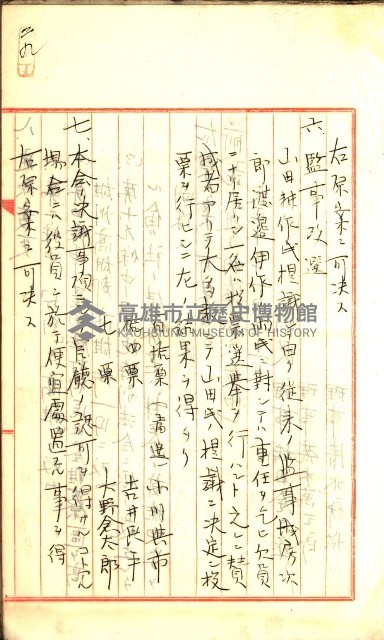 右原案ニ可決ス
六、監事改選
山田耕作氏提議ニ曰ク従来ノ監事城房次
郎渡邊伊作両氏ニ對シテハ重任ヲ乞ヒ欠員
ニナリ居リシ一名ハ投票選挙ヲ行ハントス之レニ賛
成者アリテ大多数ニテ山田氏提議ニ決定シ投
票ヲ行ヒシニ左ノ結果ヲ得タリ
票 当選 小川興市
四票 吉井長平
七票 大野倉太郎
七、本会決議事項ニシテ官廳ノ認可ヲ得ザルコトアル
場合ハ役員ニ於テ便宜處置スル事ヲ得
右原案ニ可決ス
高雄市立歷史博物館
KAOHSIUNG MUSEUM OF HISTORY